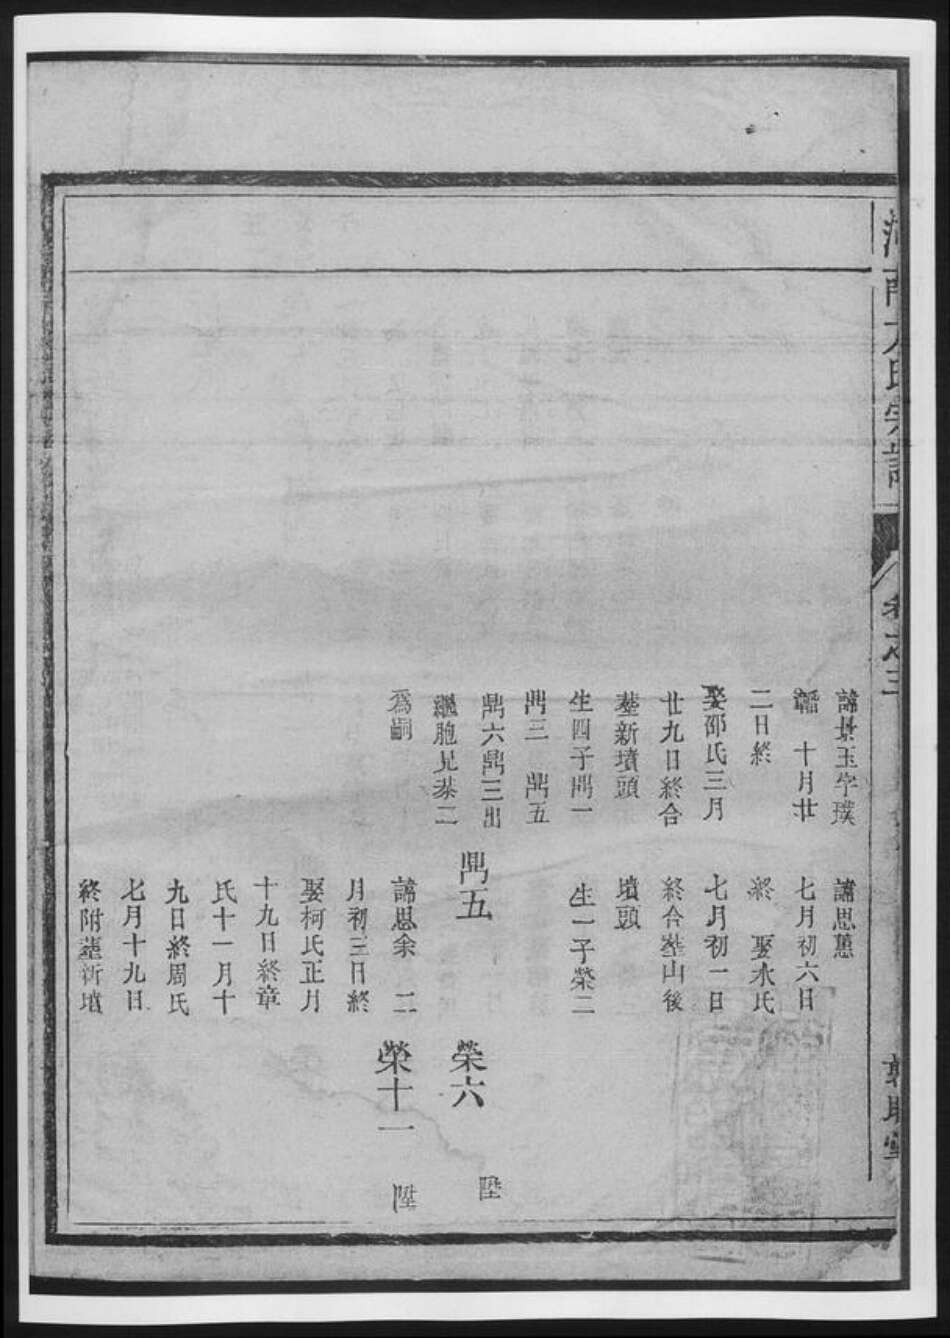 河南方氏宗譜
卷之三
敦睦堂
諱景玉字璞
韞 十月廿
二日終
娶邵氏三月
廿九日終合
塟新墳頭
生四子鼎一
鼎三 鼎五
鼎六鼎三出
繼胞兄恭二
爲嗣
諱思蕙
七月初六日
終 娶水氏
七月初一日
終合塟山後
墳頭
生一子榮二
鼎五
諱思余 二
月初三日終
娶柯氏正月
十九日終章
氏十一月十
九日終周氏
七月十九日
終附塟新墳
榮六
陞
榮十一
陞